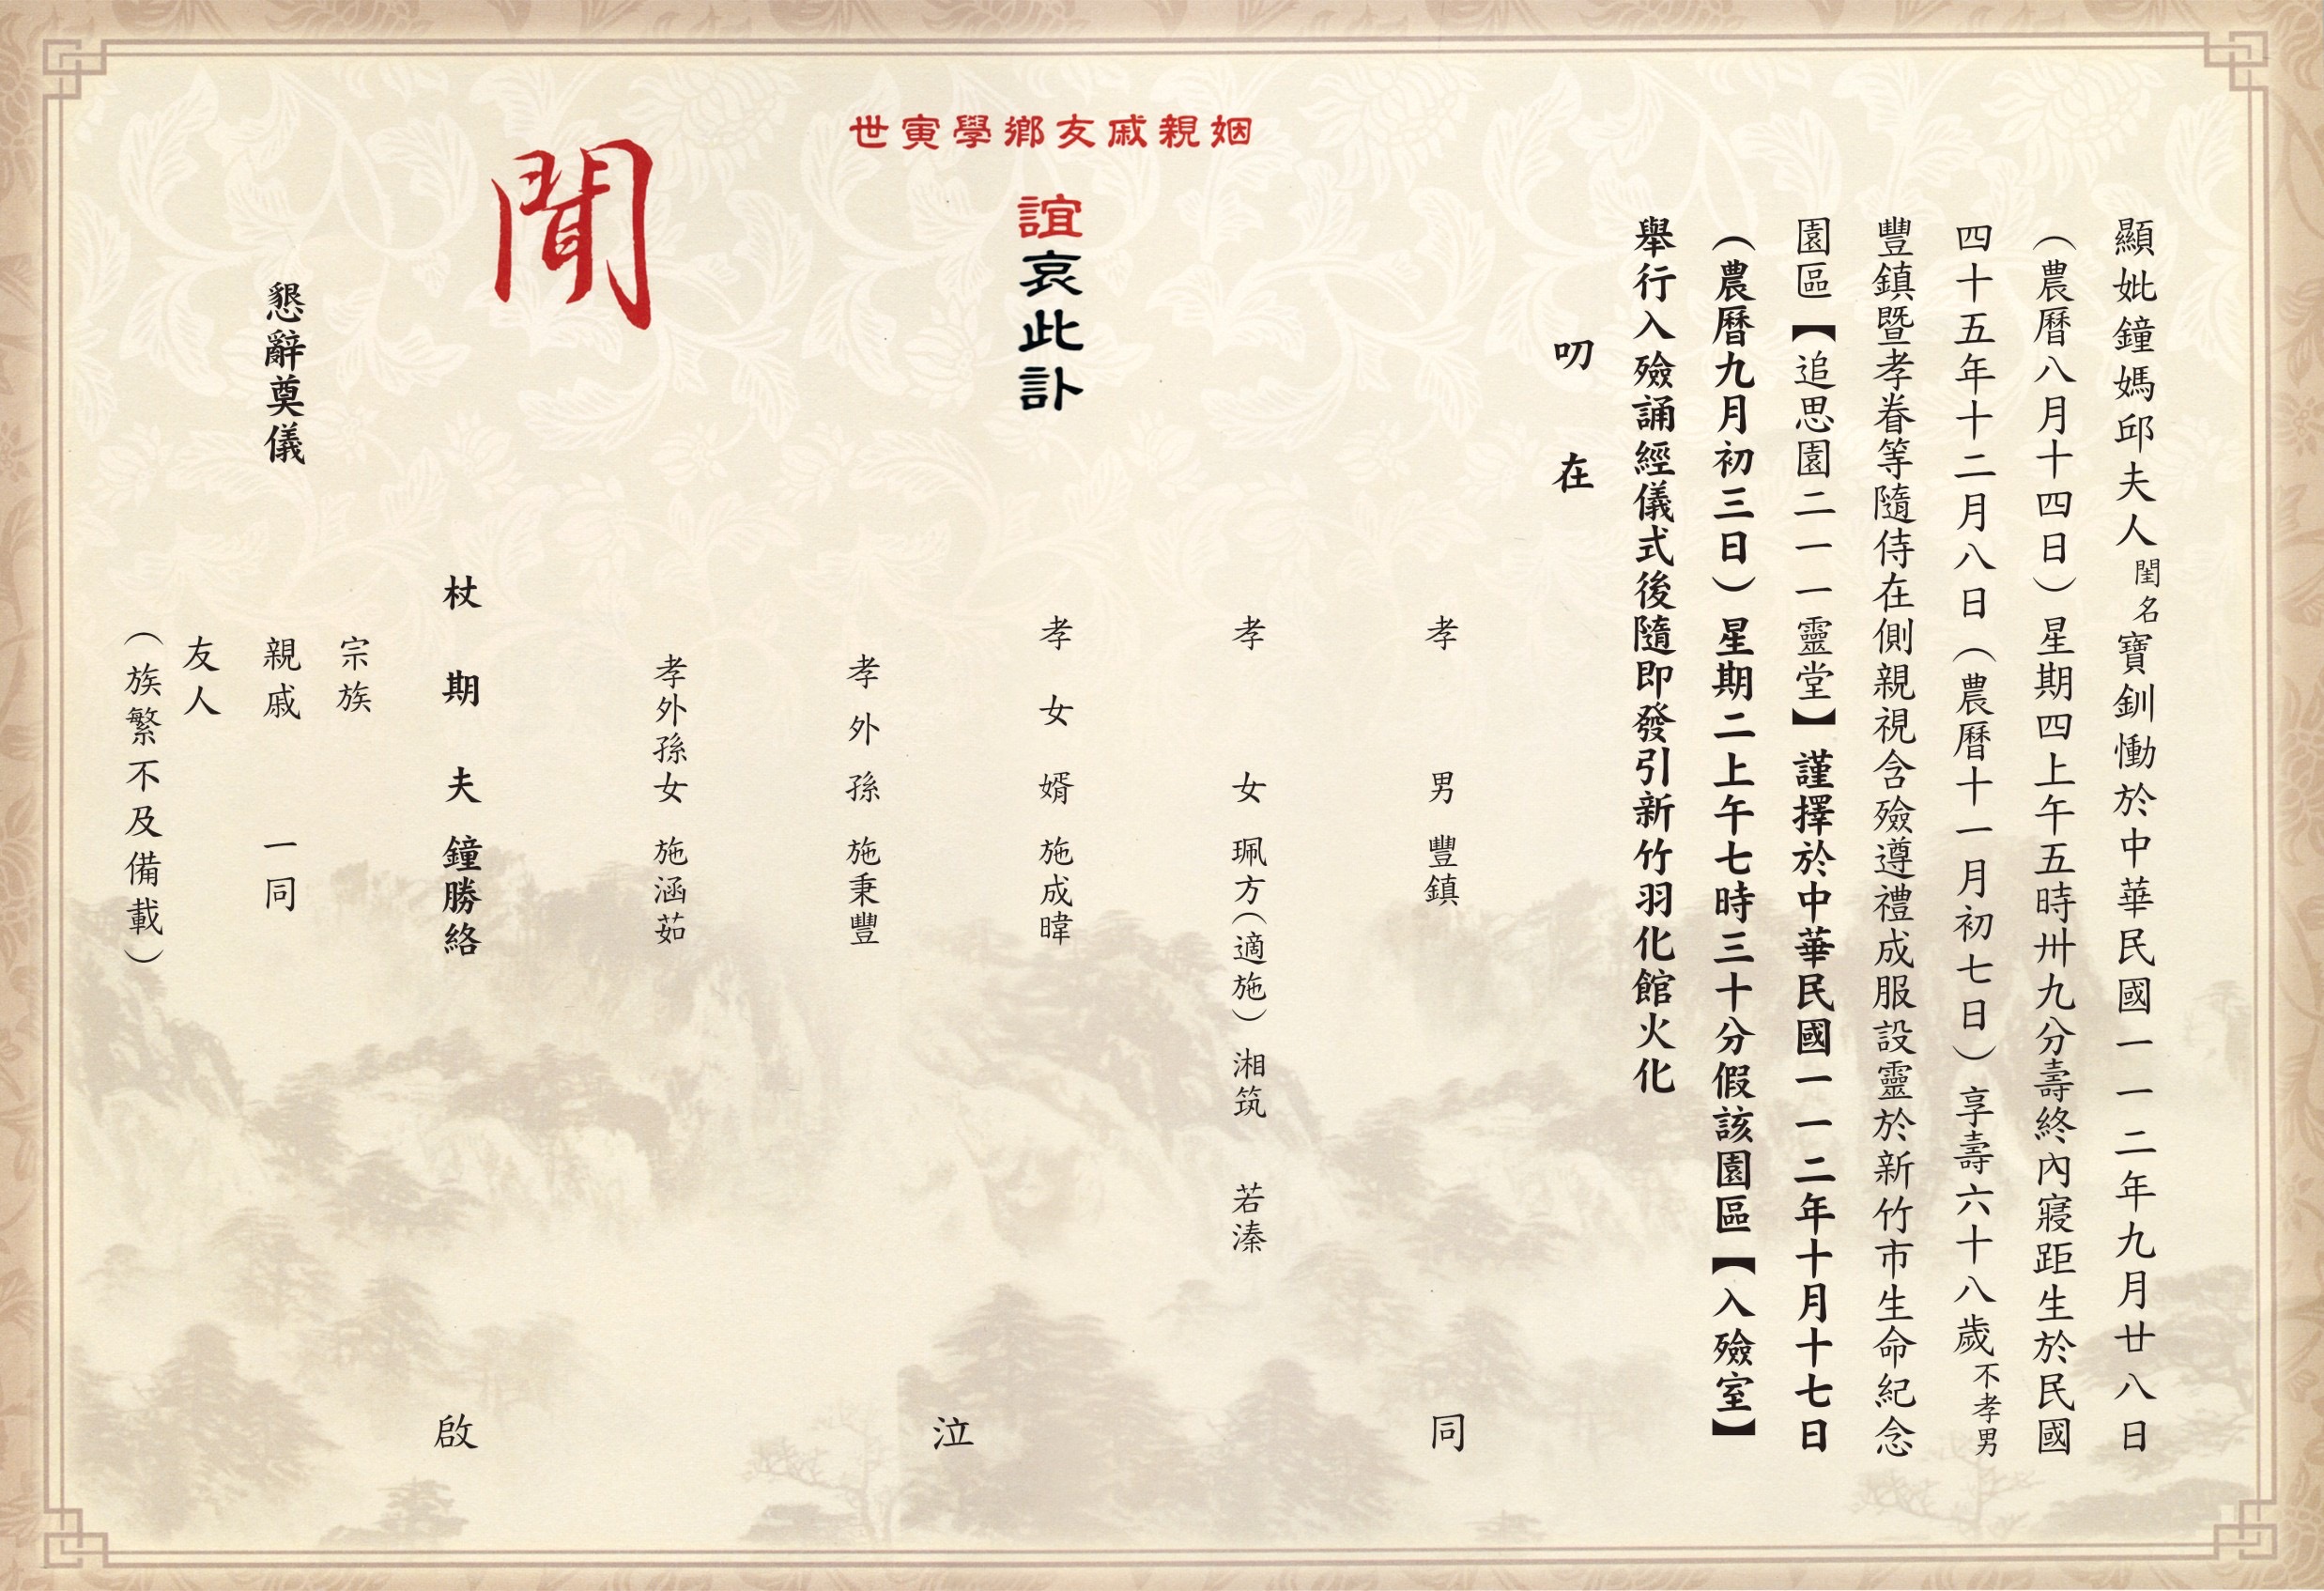 顯妣鐘媽邱夫人閨名寶釧慟於中華民國一一二年九月廿八日
（農曆八月十四日）星期四上午五時卅九分壽終內寢距生於民國
四十五年十二月八日（農曆十一月初七日）享壽六十八歲不孝男
豐鎮暨孝眷等隨侍在側親視含殮遵禮成服設靈於新竹市生命紀念
園區【追思園二一一靈堂】謹擇於中華民國一一二年十月十七日
（農曆九月初三日）星期二上午七時三十分假該園區【入殮室】
舉行入殮誦經儀式後隨即發引新竹羽化館火化
叨在
姻親戚友鄉學寅世
誼哀此訃
聞
孝男 豐鎮
孝女 珮方（適施） 湘筑 若溱
孝女婿 施成暐
孝外孫 施秉豐
孝外孫女 施涵茹
杖期夫 鐘勝絡
同泣啟
宗族
親戚 一同
友人
（族繁不及備載）
懇辭奠儀